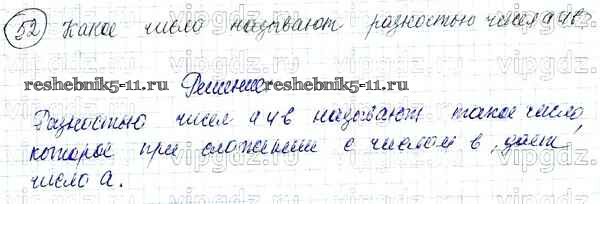 52 Какое число называют разностью чисел а и в?
Решение
reshebnik5-11.ru reshebnik5-11.ru
Разностью чисел а и в называют такое число,
которое при сложении с числом в, даёт
число а.
vipgdz.ru